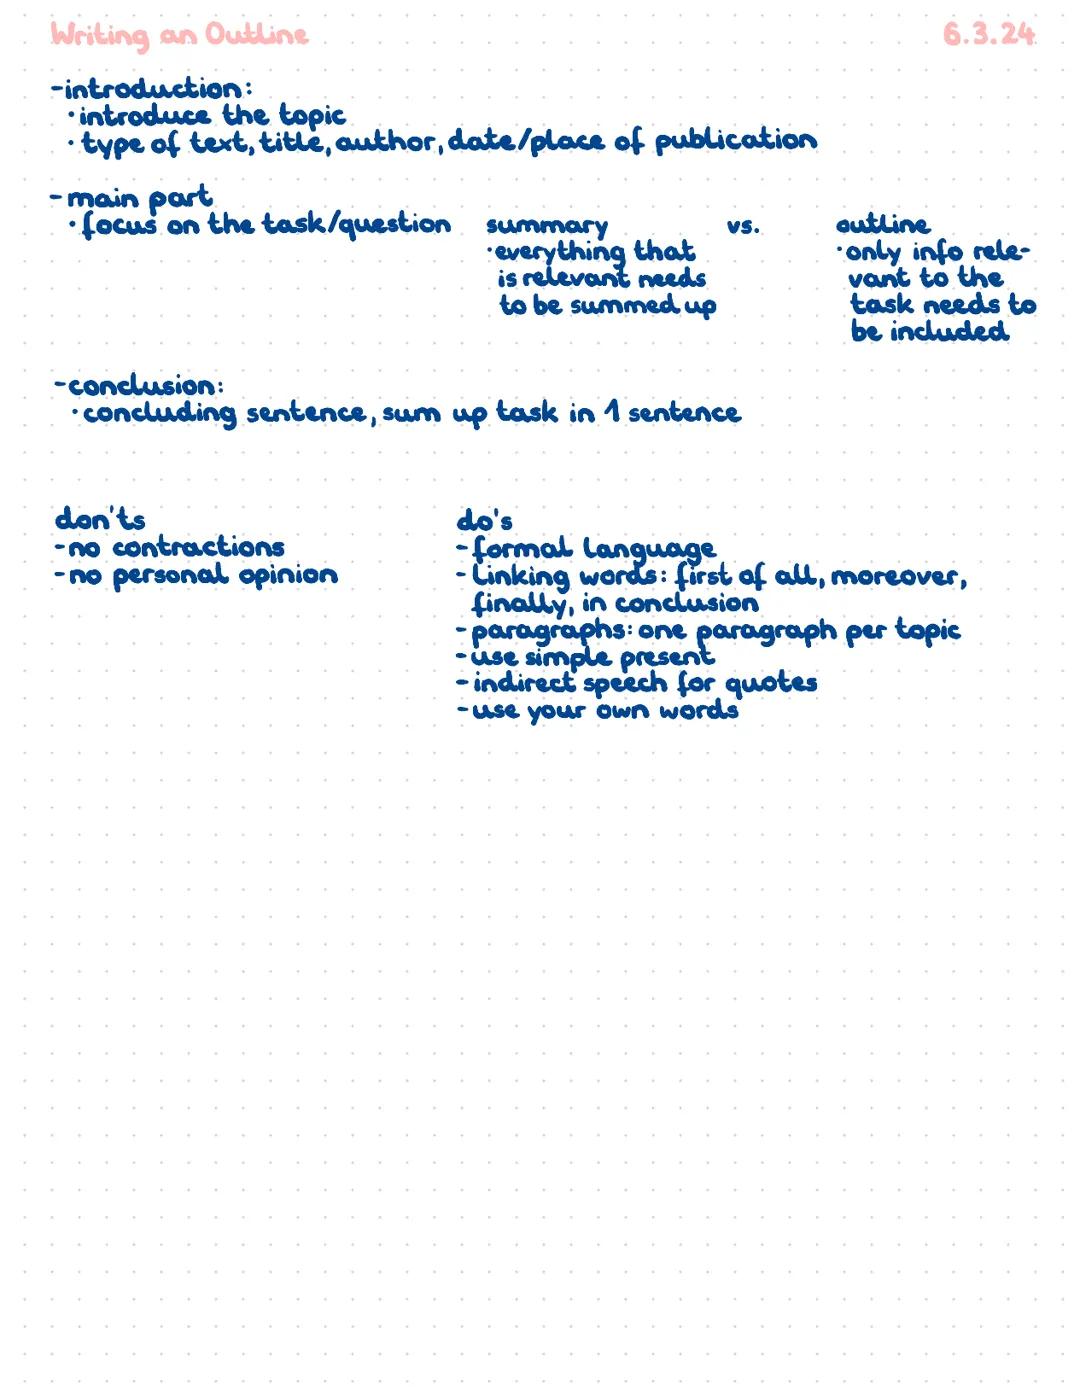 Writing an Outline 6.3.24
-introduction:
·introduce the topic
·type of text, title, author, date/place of publication
-main part
·focus on the task/question summary vs. outline
·everything that ·only info rele-
is relevant needs vant to the
to be summed up task needs to
be included
-conclusion:
·concluding sentence, sum up task in 1 sentence
don'ts do's
-no contractions -formal language
-no personal opinion -linking words: first of all, moreover,
finally, in conclusion
-paragraphs: one paragraph per topic
-use simple present
-indirect speech for quotes
-use your own words